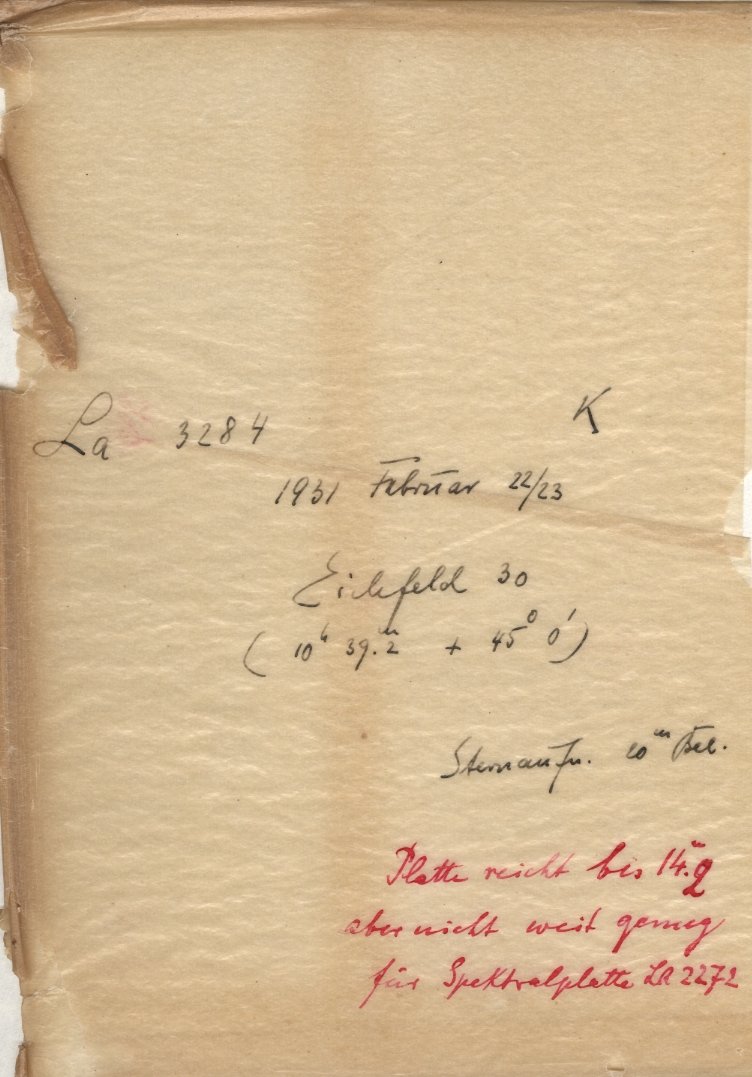 La 3284 K
1931 Februar 22/23
Eichfeld 30
(10ʰ 39.ᵐ2 + 45⁰ 0')
Sternaufn. 10ᵐ Bel.
Platte reicht bis 14.ᵐ9
aber nicht weit genug
für Spektralplatte La 2272